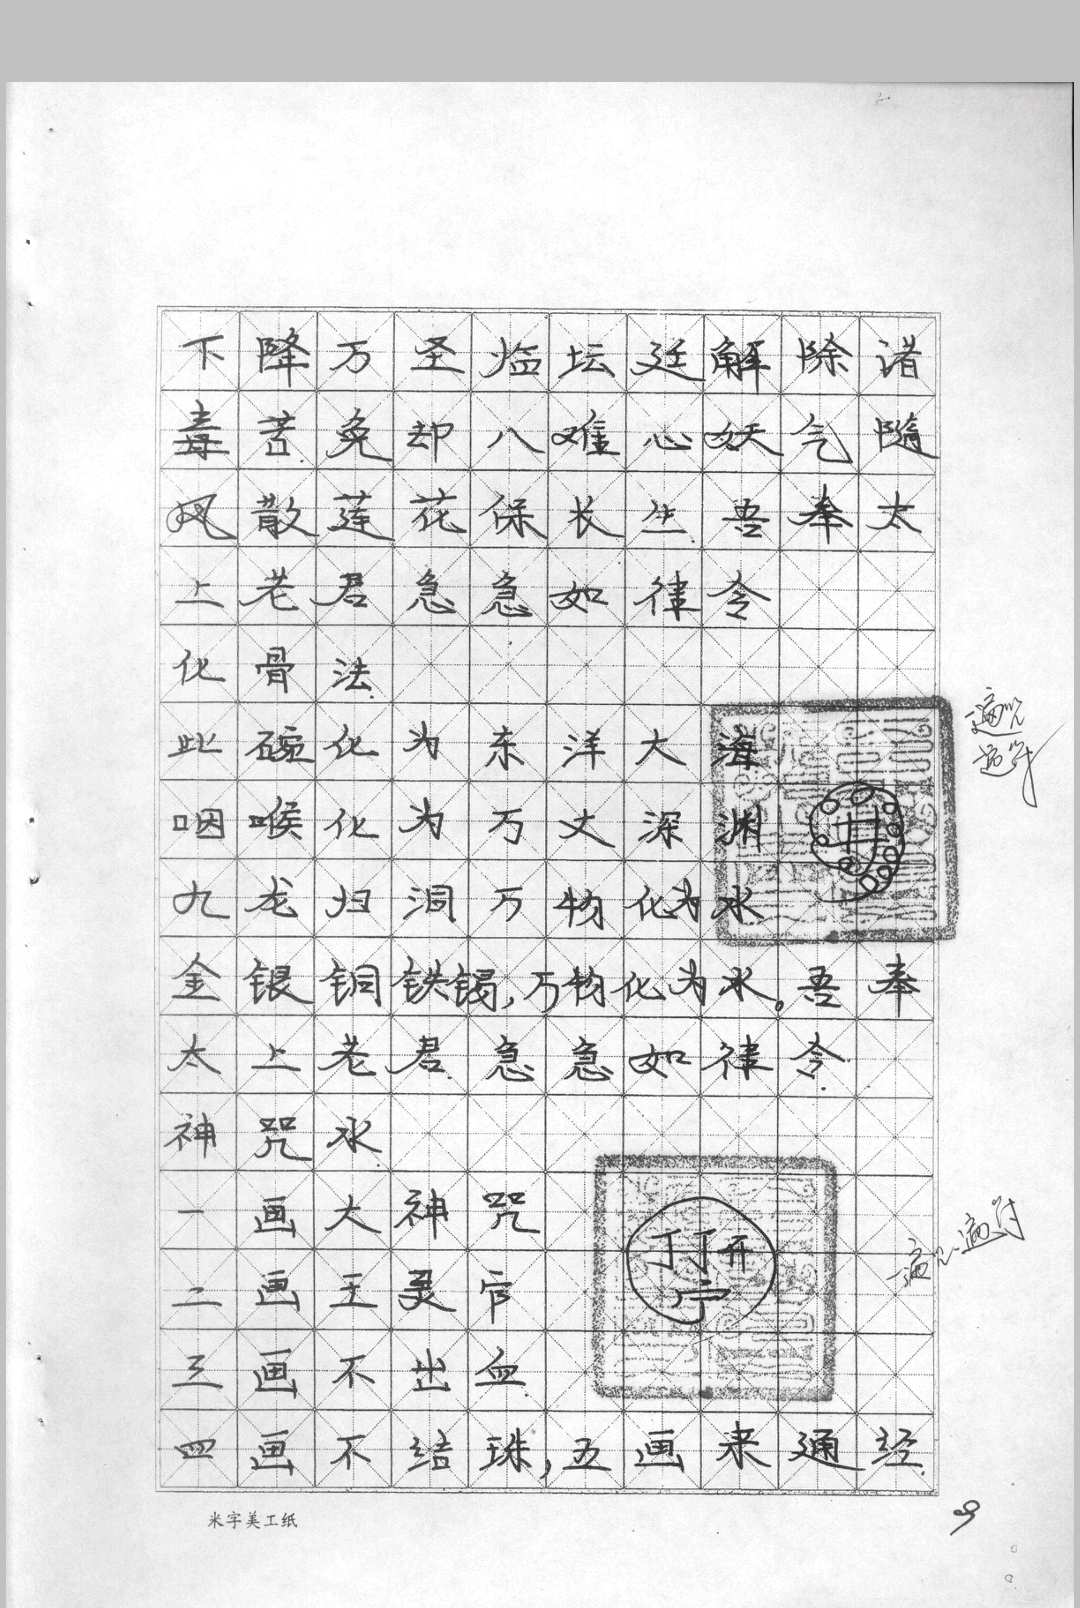 下降万圣临坛廷解除诸
毒苦免却八难心妖气随
风散莲花保长生吾奉太
上老君急急如律令
化骨法
此碗化为东洋大海
咽喉化为万丈深渊
九龙归洞万物化为水
金银铜铁锡,万物化为水。吾奉
太上老君急急如律令.
神咒水.
一画大神咒
二画王灵官
三画不出血
四画不结珠,五画来通经.
米字美工纸
9